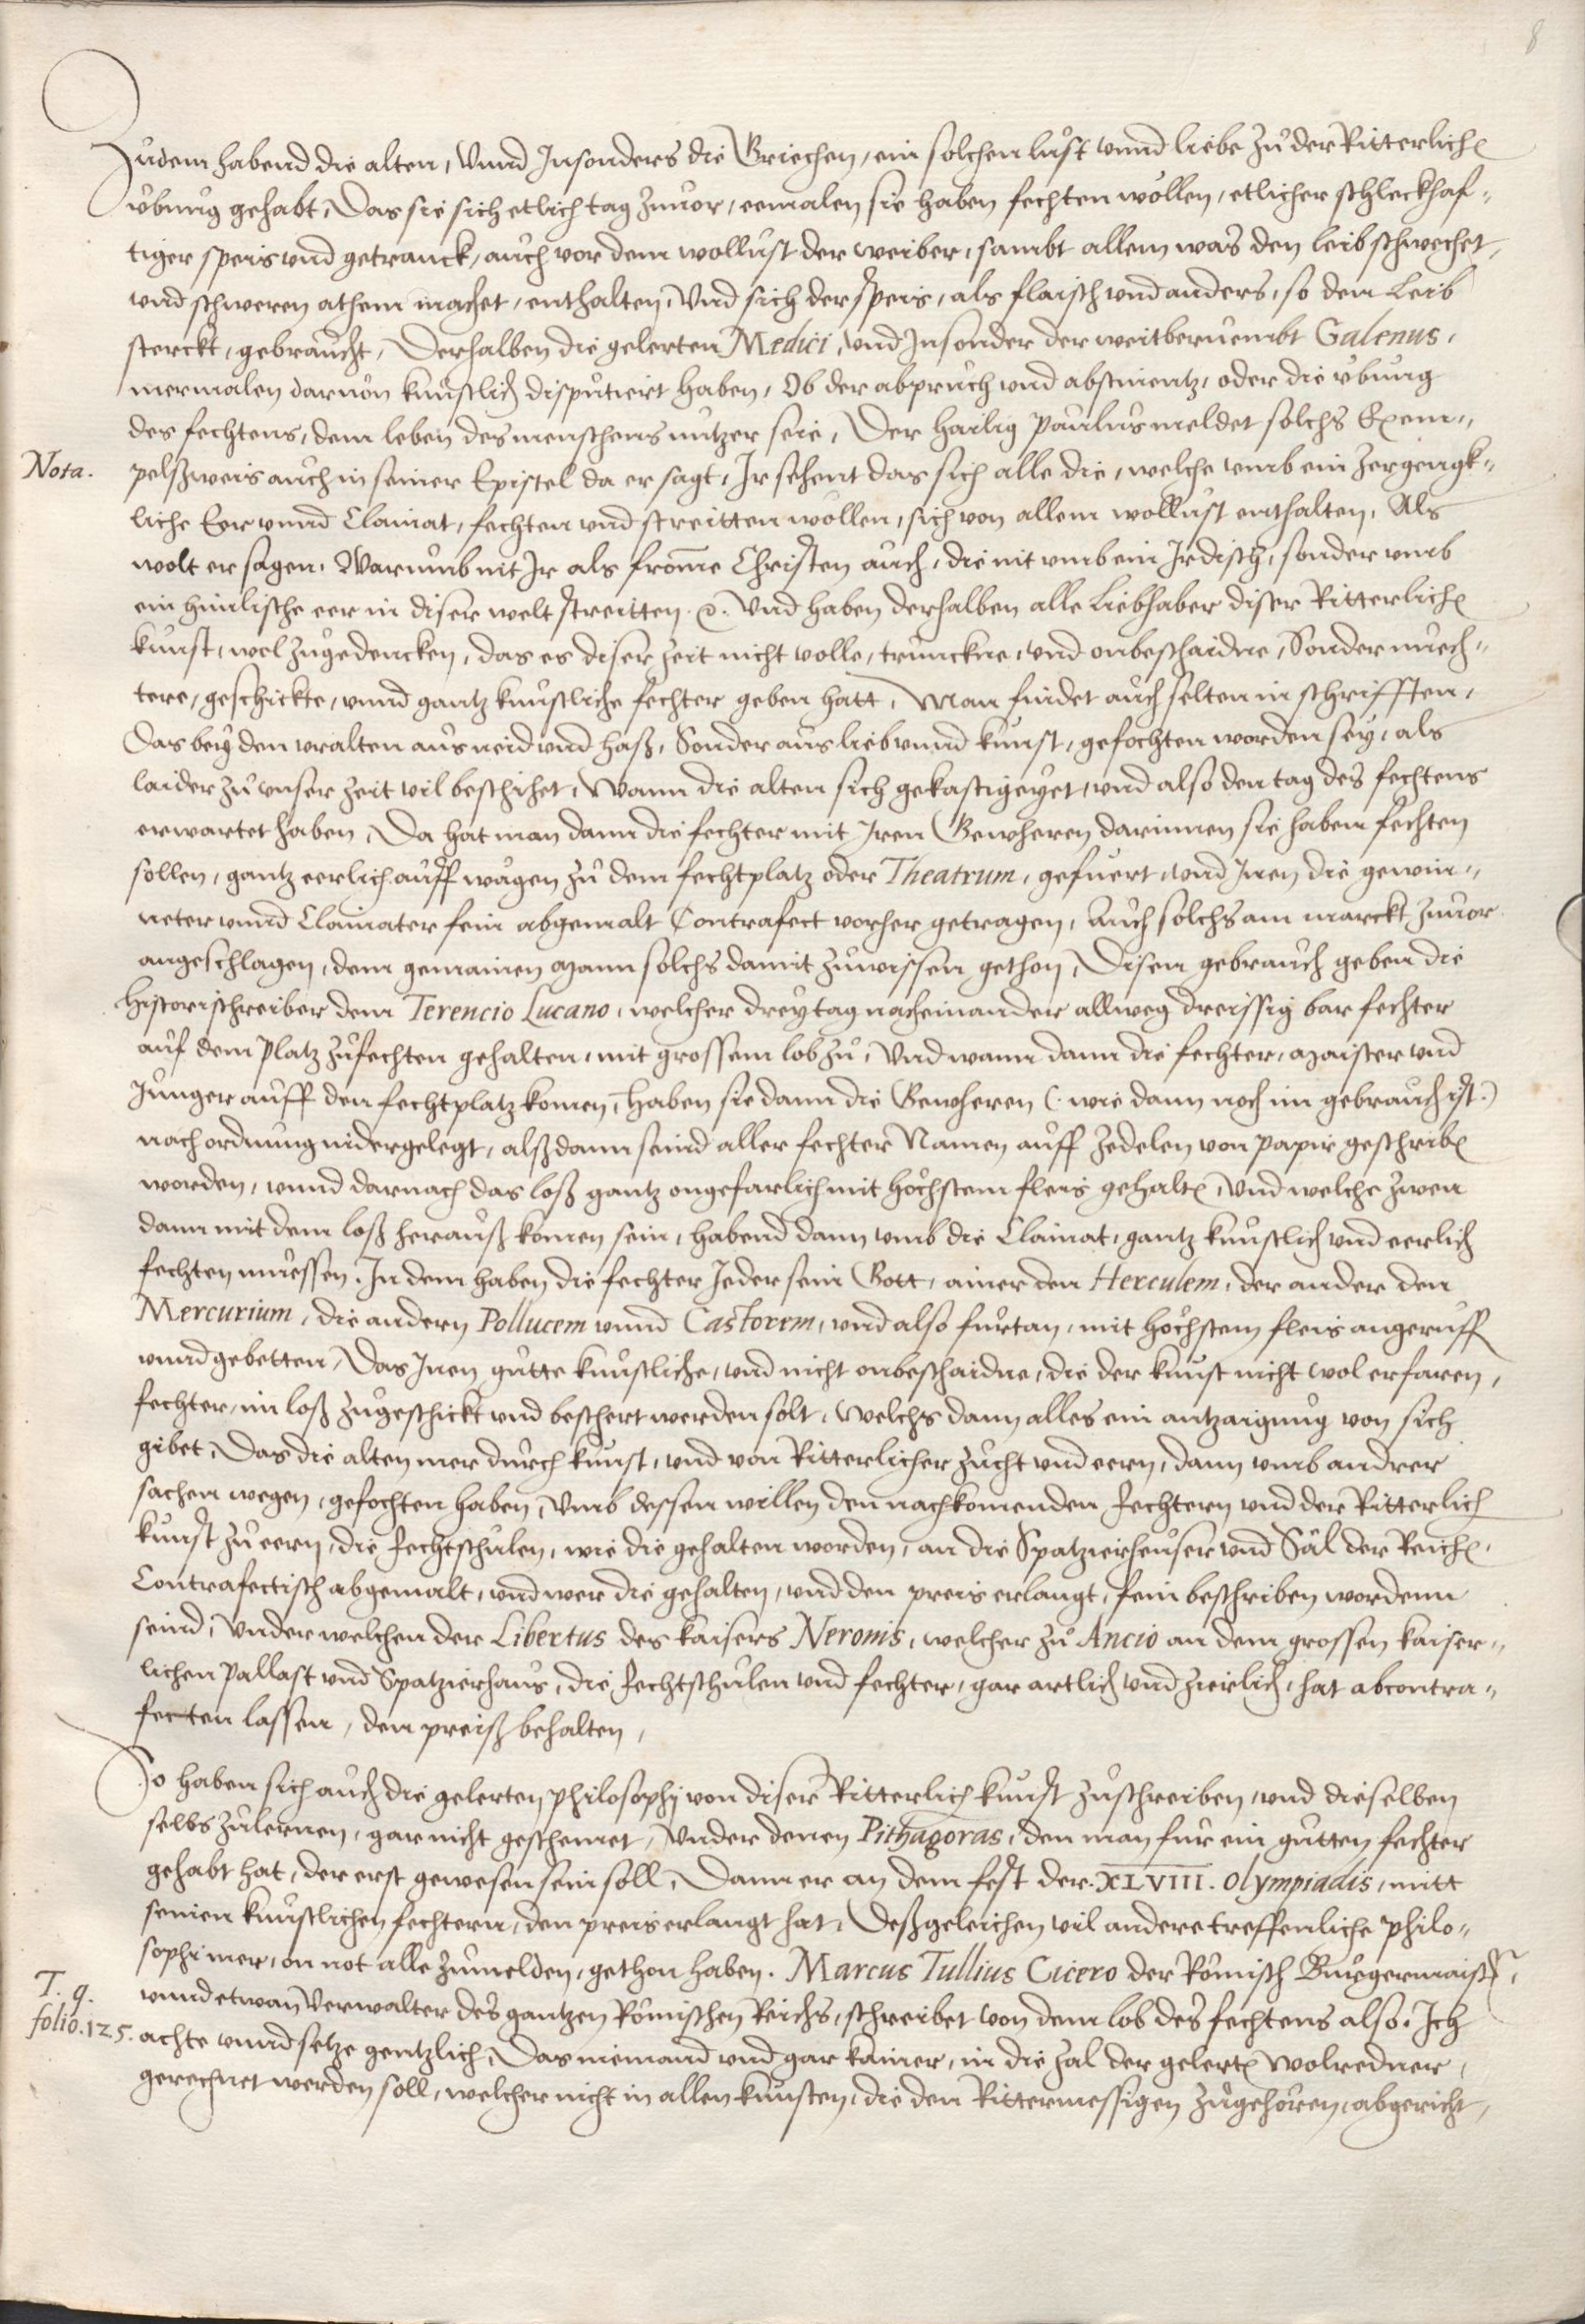 8
Zudem habend die alten, Vnnd Jnsonders die Griechen, ein solchen lust vnnd liebe zů der Ritterlichē
vbung gehabt, Das sie sich etlich tag zuuor, eemalen sie haben fechten wöllen, etlicher schleckhaf-
tiger speis vnd getranck, auch vor dem wollust der weiber, sambt allem was den leib schwechet,
vnd schweren athem machet, enthalten, Vnd sich der speis, als flaisch vnd anders, so den Leib
sterckt, gebraucht, Derhalben die gelerten Medici, vnd Jnsonder der weitberuembt Galenus,
mermalen daruon kunstlich disputiert haben, Ob der abpruch vnd abstinentz, oder die vbung
des fechtens, dem leben des menschens nutzer seie, Der hailig Paulus meldet solchs Exem-
Nota.
pelßweis auch in seiner Epistel da er sagt, Jr sehent das sich alle die, welche vmb ein zergengk-
liche Eer vnnd Clainat, fechten vnd streitten wöllen, sich von allem wollust enthalten, Als
wolt er sagen, Warumb nit Jr als from̄e Christen auch, die nit vmb ein Jrdisch, sonder vmb
ein himlische eer in diser welt streitten .ꝛc. Vnd haben derhalben alle Liebhaber diser Ritterlichē
kunst, wol zůgedencken, das es diser zeit nicht volle, trunckne, vnd onbeschaidne, Sonder nüech-
tere, geschickte, vnnd gantz kunstliche fechter geben hatt, Man findet auch selten in schrifften,
Das bey den vralten aus neid vnd haß, Sonder aus lieb vnnd kunst, gefochten worden sey, als
laider zů vnser zeit vil beschihet, Wann die alten sich gekastigeyet, vnd also den tag des fechtens
erwartet haben, Da hat man dann die fechter mit Jren Gewheren darinnen sie haben fechten
sollen, gantz eerlich auff wägen zů dem fechtplatz oder Theatrum, gefuert, vnd Jnen die gewin-
neter vnnd Clainater fein abgemalt Contrafect vorher getragen, Auch solchs am marckt zuuor
angeschlagen, dem gemainen Mann solchs damit zůwissen gethon, Disen gebrauch geben die
historischreiber dem Terencio Lucano, welcher drey tag nacheinander allweg dreissig bar fechter
auf dem Platz zůfechten gehalten, mit grossem lob zů, Vnd wann dann die fechter, Maister vnd
Junger auff den fechtplatz komen, haben sie dann die Gewheren (. wie dann noch im gebrauch ist .)
nach ordnung nidergelegt, alßdann seind aller fechter Namen auff zedelen von papir geschribē
worden, vnnd darnach das loß gantz ongefarlich mit höchstem fleis gehaltē, Vnd welche zwen
dann mit dem loß herauß komen sein, habend dann vmb die Clainat, gantz kunstlich vnd eerlich
fechten müessen. Jn dem haben die fechter Jeder sein Gott, ainer den Herculem, der ander den
Mercurium, die andern Pollucem vnnd Castorem, vnd also furtan, mit höchstem fleis angerufft
vnnd gebetten, Das Jnen gůtte kunstliche, vnd nicht onbeschaidne, die der kunst nicht wol erfaren,
fechter, im loß zůgeschickt vnd beschert werden solt, Welchs dann alles ein antzaigung von sich
gibet, Das die alten mer durch kunst, vnd von Ritterlicher zucht vnd eern, dann vmb andrer
sachen wegen, gefochten haben, Vmb dessen willen den nachkomenden Fechtern vnd der Ritterlich
kunst zů eern, die Fechtschůlen, wie die gehalten worden, an die Spatzierheuser vnd Säl der Reichē,
Contrafectisch abgemalt, vnd wer die gehalten, vnd den preis erlangt, fein beschriben wordenn
seind, Vnder welchen der Libertus des kaisers Neronis, welcher zů Ancio an dem grossen kaiser-
lichen Pallast vnd Spatzierhaus, die Fechtschůlen vnd fechter, gar artlich vnd zierlich, hat abcontra-
fecten lassen, den preiß behalten,
So haben sich auch die gelerten philosophj von diser Ritterlich kunst zůschreiben, vnd dieselben
selbs zůlernen, gar nicht geschemet, Vnder denen Pithagoras, den man fur ein gůtten fechter
gehabt hat, der erst gewesen sein soll, Dann er an dem fest der .XLVIII. Olympiadis, mitt
seinen kunstlichen fechtern, den preis erlangt hat, Deßgeleichen vil andere treffenliche philo-
sophi mer, on not alle zůmelden, gethon haben. Marcus Tullius Cicero der Römisch Burgermaister,
T. q.
folio. 125.
vnnd etwan Verwalter des gantzen Römischen Reichs, schreibet von dem lob des fechtens also. Jch
achte vnnd setze gentzlich, Das niemand vnd gar kainer, in die zal der gelertē Wolredner,
gerechnet werden soll, welcher nicht in allen kunsten, die den Rittermessigen zůgehören, abgericht,